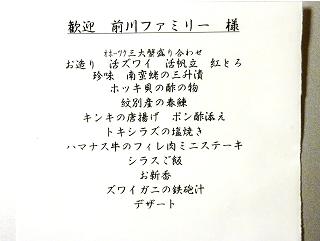 歓迎　前川ファミリー　様
ｵﾎｰﾂｸ三大蟹盛り合わせ
お造り　活ズワイ　活帆立　紅とろ
珍味　南蛮鮭の三升漬
ホッキ貝の酢の物
紋別産の春鰊
キンキの唐揚げ　ポン酢添え
トキシラズの塩焼き
ハマナス牛のフィレ肉ミニステーキ
シラスご飯
お新香
ズワイガニの鉄砲汁
デザート